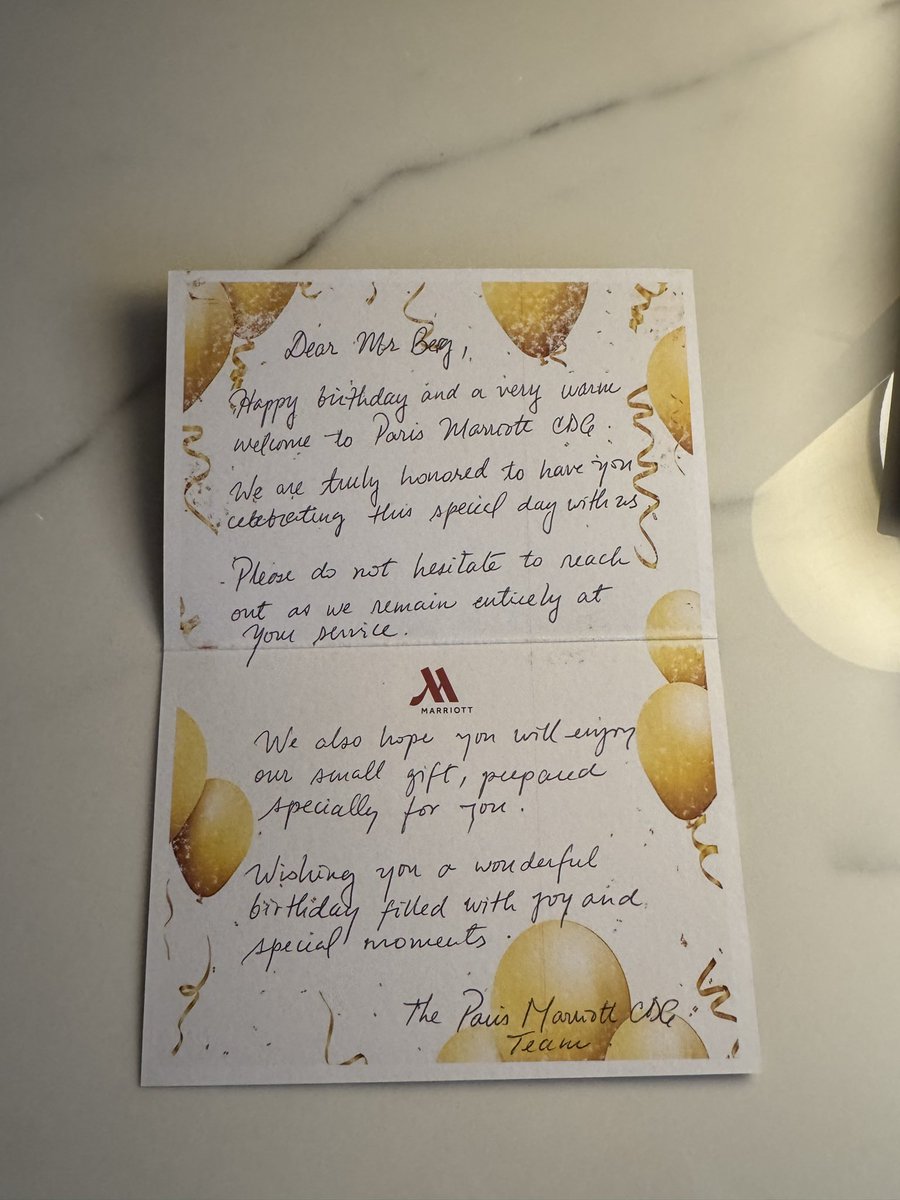 Dear Mr Berg,
Happy birthday and a very warm
welcome to Paris Marriott CDG.
We are truly honored to have you
celebrating this special day with us
Please do not hesitate to reach
out as we remain entirely at
your service.
MARRIOTT
We also hope you will enjoy
our small gift, prepared
specially for you.
Wishing you a wonderful
birthday filled with joy and
special moments.
The Paris Marriott CDG
Team